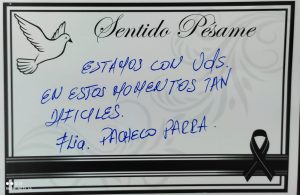 Sentido Pésame
ESTAMOS CON Uds.
EN ESTOS MOMENTOS TAN
DIFICILES.
Flia. PACHECO PARRA.